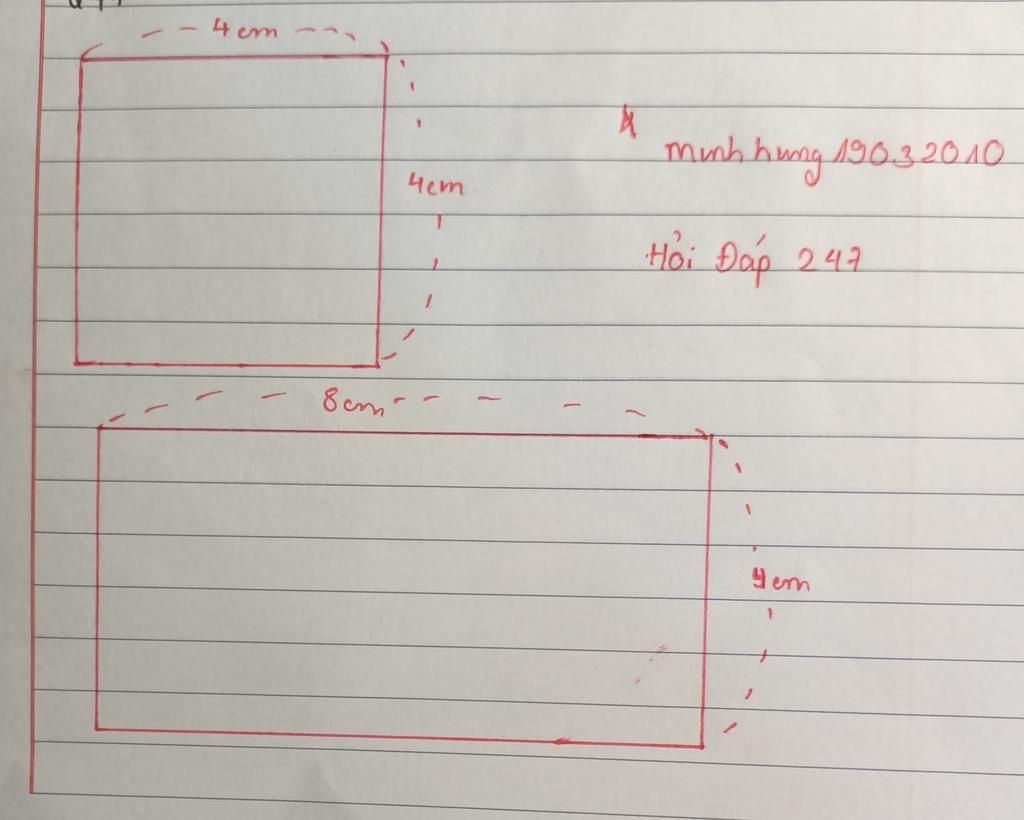 4cm
4cm
minhhung19032010
Hỏi Đáp 247
8cm
4cm